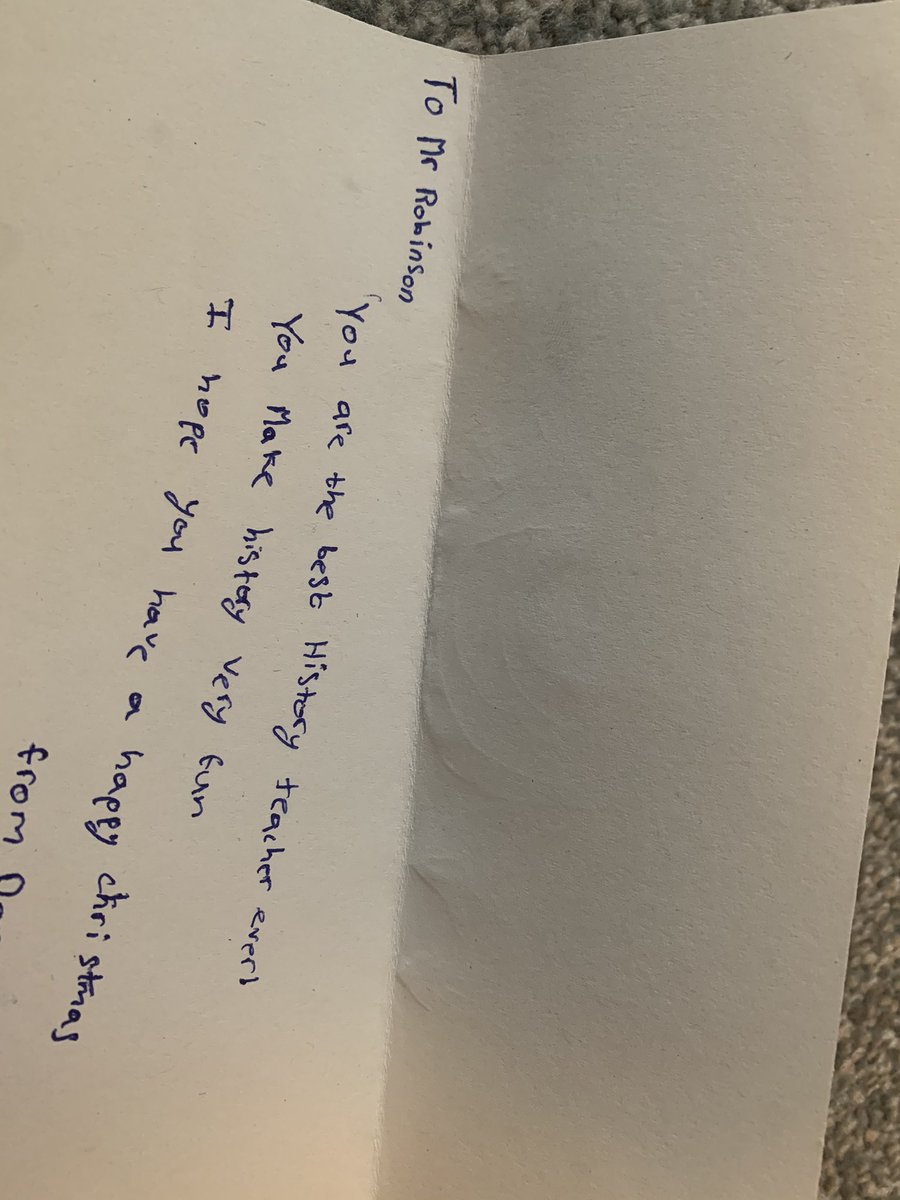 To Mr Robinson
You are the best History teacher ever!
You Make history very fun
I hope you have a happy christmas
from